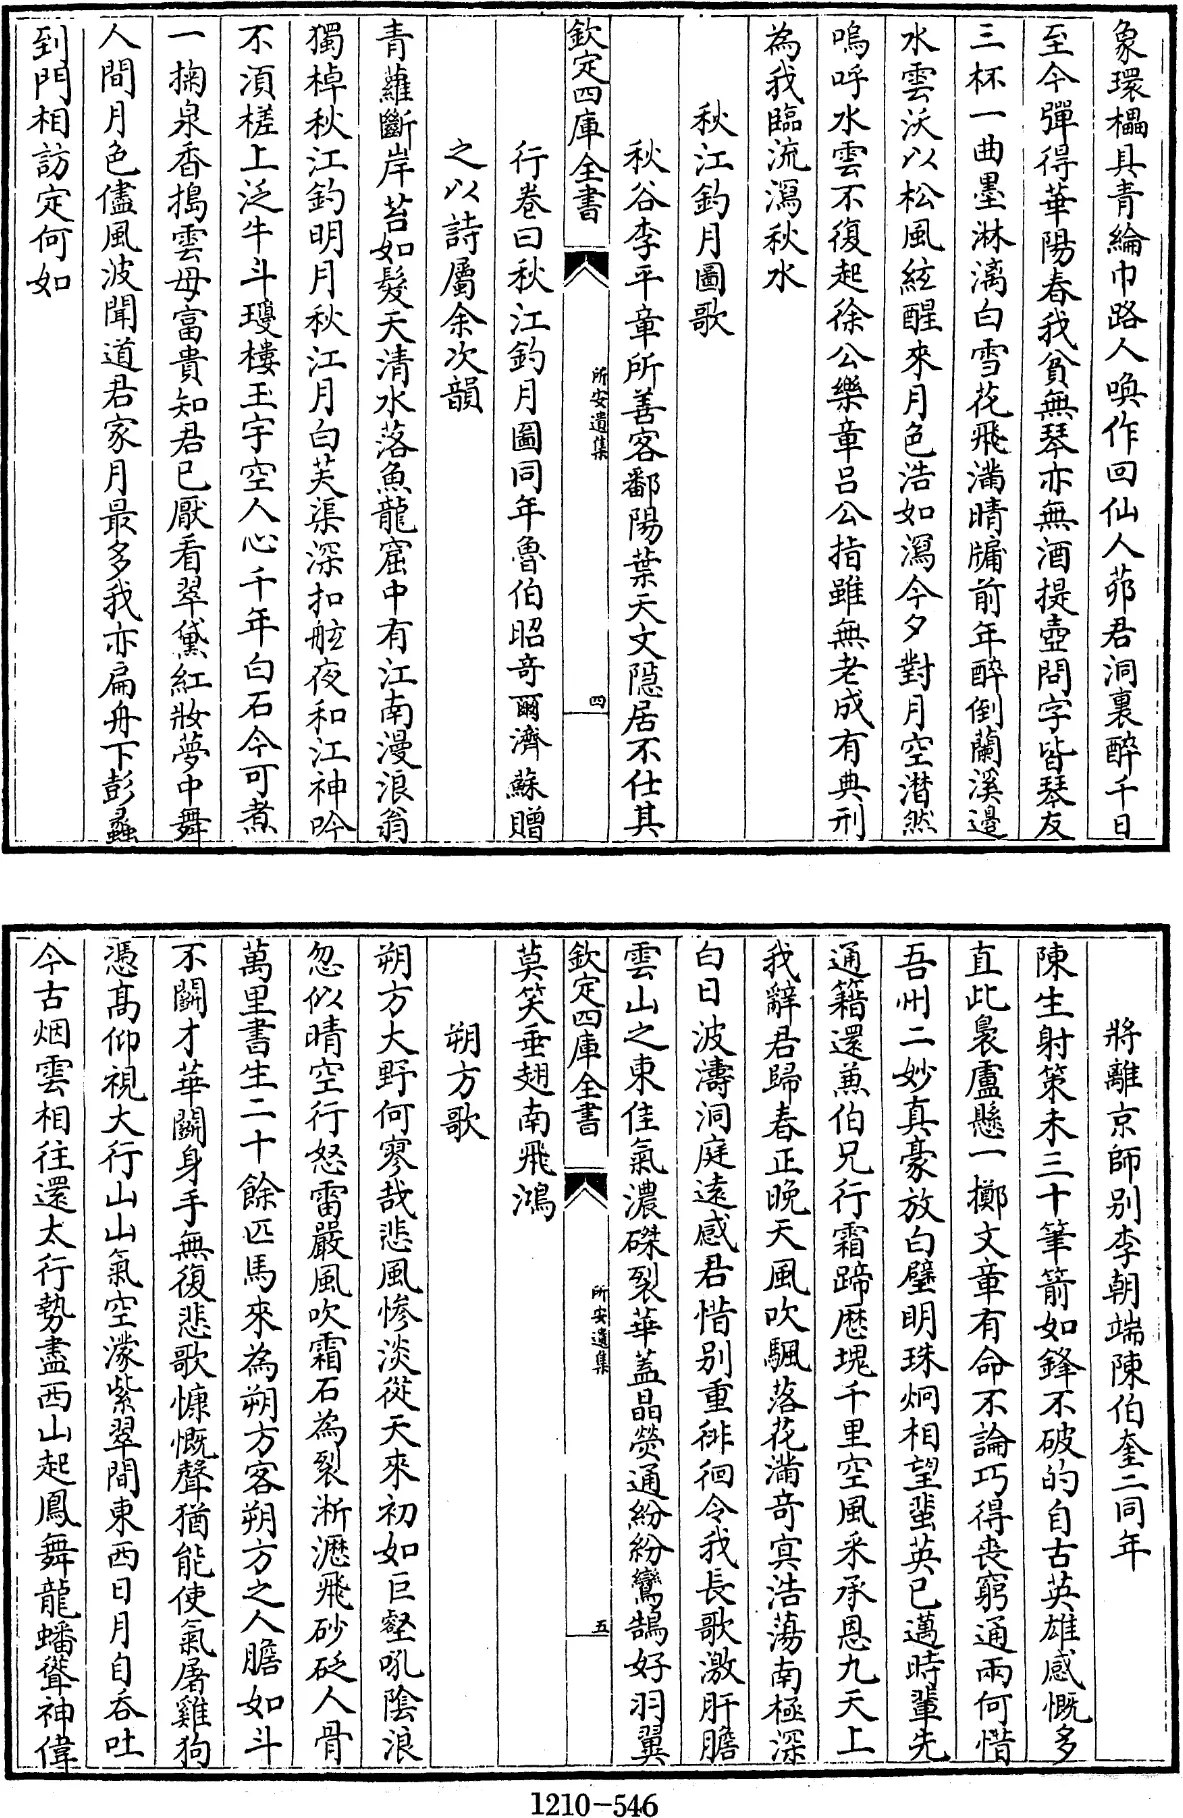 象環櫑具青綸巾路人喚作回仙人茆君洞裏醉千日
至今彈得華陽春我貧無琴亦無酒提壺問字皆琴友
三杯一曲墨淋漓白雪花飛滿晴牖前年醉倒蘭溪邊
水雲沃以松風絃醒來月色浩如瀉今夕對月空潸然
嗚呼水雲不復起徐公樂章呂公指雖無老成有典刑
為我臨流瀉秋水
秋江釣月圖歌
秋谷李平章所善客鄱陽葉天文隱居不仕其
欽定四庫全書
所安遺集
四
行卷曰秋江釣月圖同年魯伯昭奇爾濟蘇贈
之以詩屬余次韻
青蘿斷岸苔如髮天清水落魚龍窟中有江南漫浪翁
獨棹秋江釣明月秋江月白芙渠深扣舷夜和江神吟
不須槎上泛牛斗瓊樓玉宇空人心千年白石今可煮
一掬泉香搗雲母富貴知君已厭看翠黛紅妝夢中舞
人間月色儘風波聞道君家月最多我亦扁舟下彭蠡
到門相訪定何如
將離京師别李朝端陳伯奎二同年
陳生射策未三十筆箭如鋒不破的自古英雄感慨多
直此裊盧懸一擲文章有命不論巧得丧窮通兩何惜
吾州二妙真豪放白璧明珠炯相望蜚英已邁時輩先
通籍還兼伯兄行霜蹄歷塊千里空風采承恩九天上
我辭君歸春正晚天風吹颿落花滿奇寘浩蕩南極深
白日波濤洞庭遠感君惜别重徘徊令我長歌激肝膽
雲山之東佳氣濃磔裂華蓋晶熒通紛紛鸞鵠好羽翼
欽定四庫全書
所安遺集
五
莫笑垂翅南飛鴻
朔方歌
朔方大野何寥哉悲風慘淡從天來初如巨壑吼陰浪
忽似晴空行怒雷嚴風吹霜石為裂淅瀝飛砂砭人骨
萬里書生二十餘匹馬來為朔方客朔方之人膽如斗
不鬭才華鬭身手無復悲歌慷慨聲猶能使氣屠雞狗
憑高仰視大行山山氣空濛紫翠間東西日月自吞吐
今古烟雲相往還太行勢盡西山起鳳舞龍蟠聳神偉
1210-546